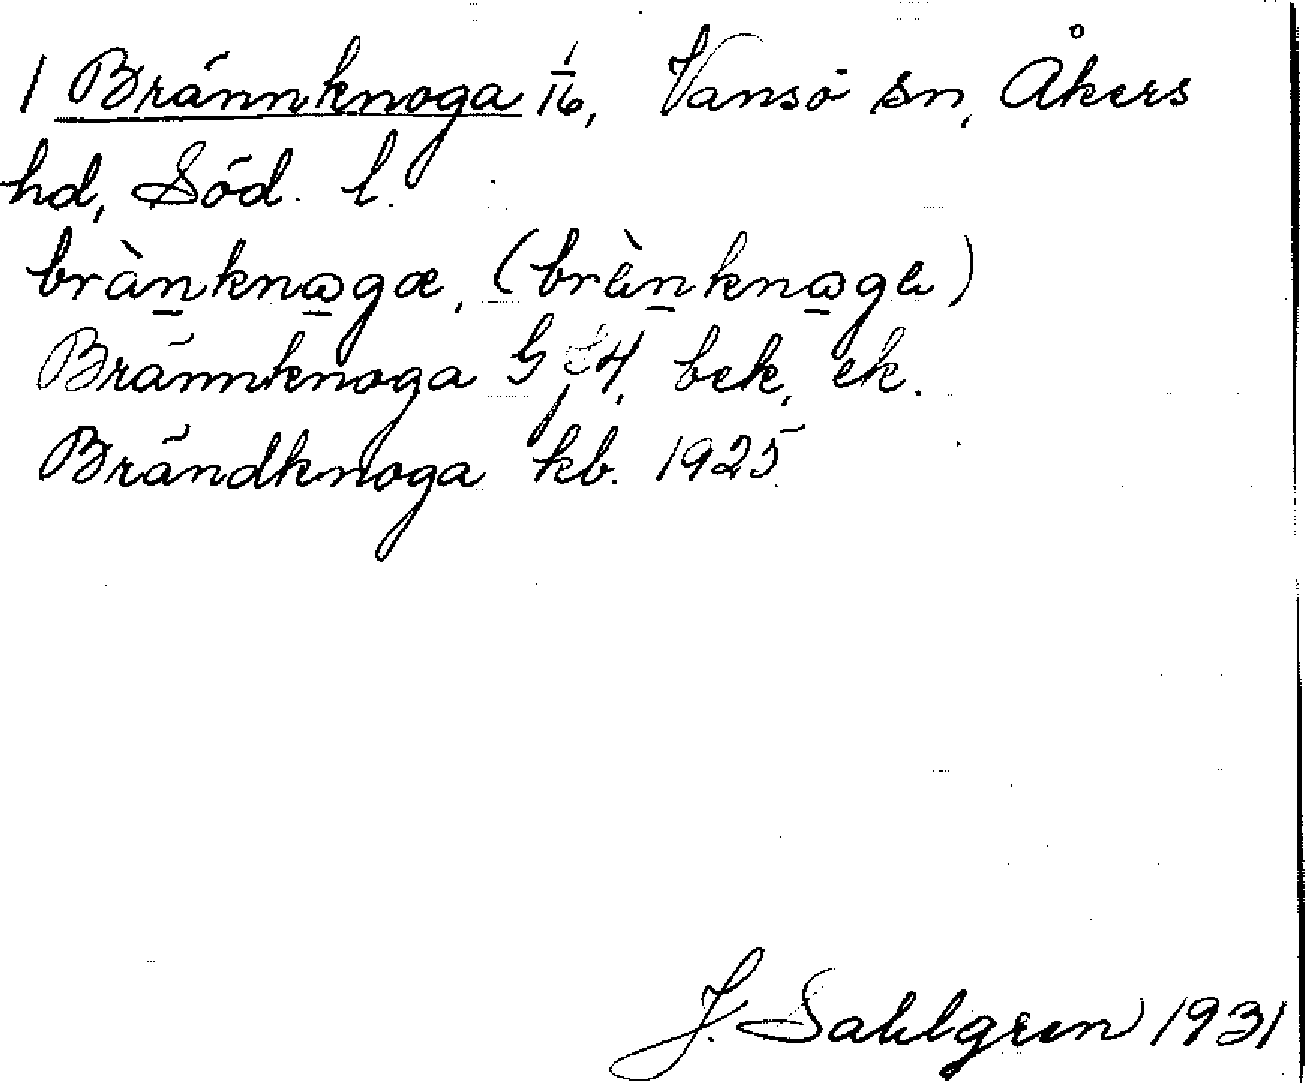 1 Brännknoga 1/16, Vansö sn, Åkers
hd, Söd. l.
brànknωgα, (brànknωga)
Brännknoga G 4, bek, ek.
Brändknoga kb. 1925
J. Sahlgren 1931